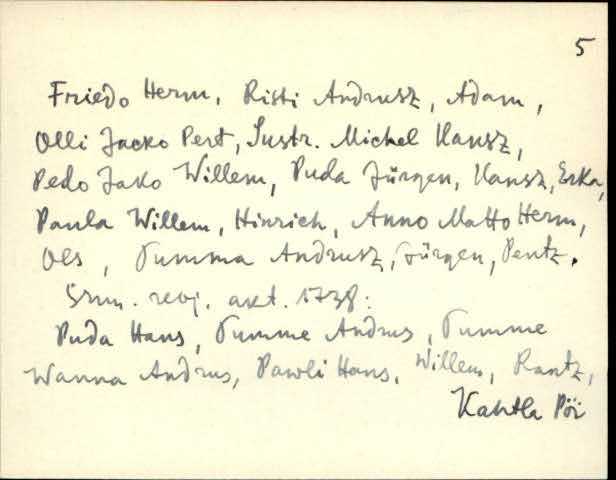 5
Friedo Herm, Risti Andrusz, Adam,
Olli Jacko Pert, Sustr. Michel Hansz,
Pedo Jako Willem, Puda Jürgen, Hansz, Erka,
Paula Willem, Hinrich, Anno Matto Herm,
Ols, Tumma Andrusz, Jürgen, Pentz.
Srm. revj. akt. 1738:
Puda Hans, Tumme Andrus, Tumme
Wanna Andrus, Pawli Hans, Willem, Rantz,
Kahtla Pöi